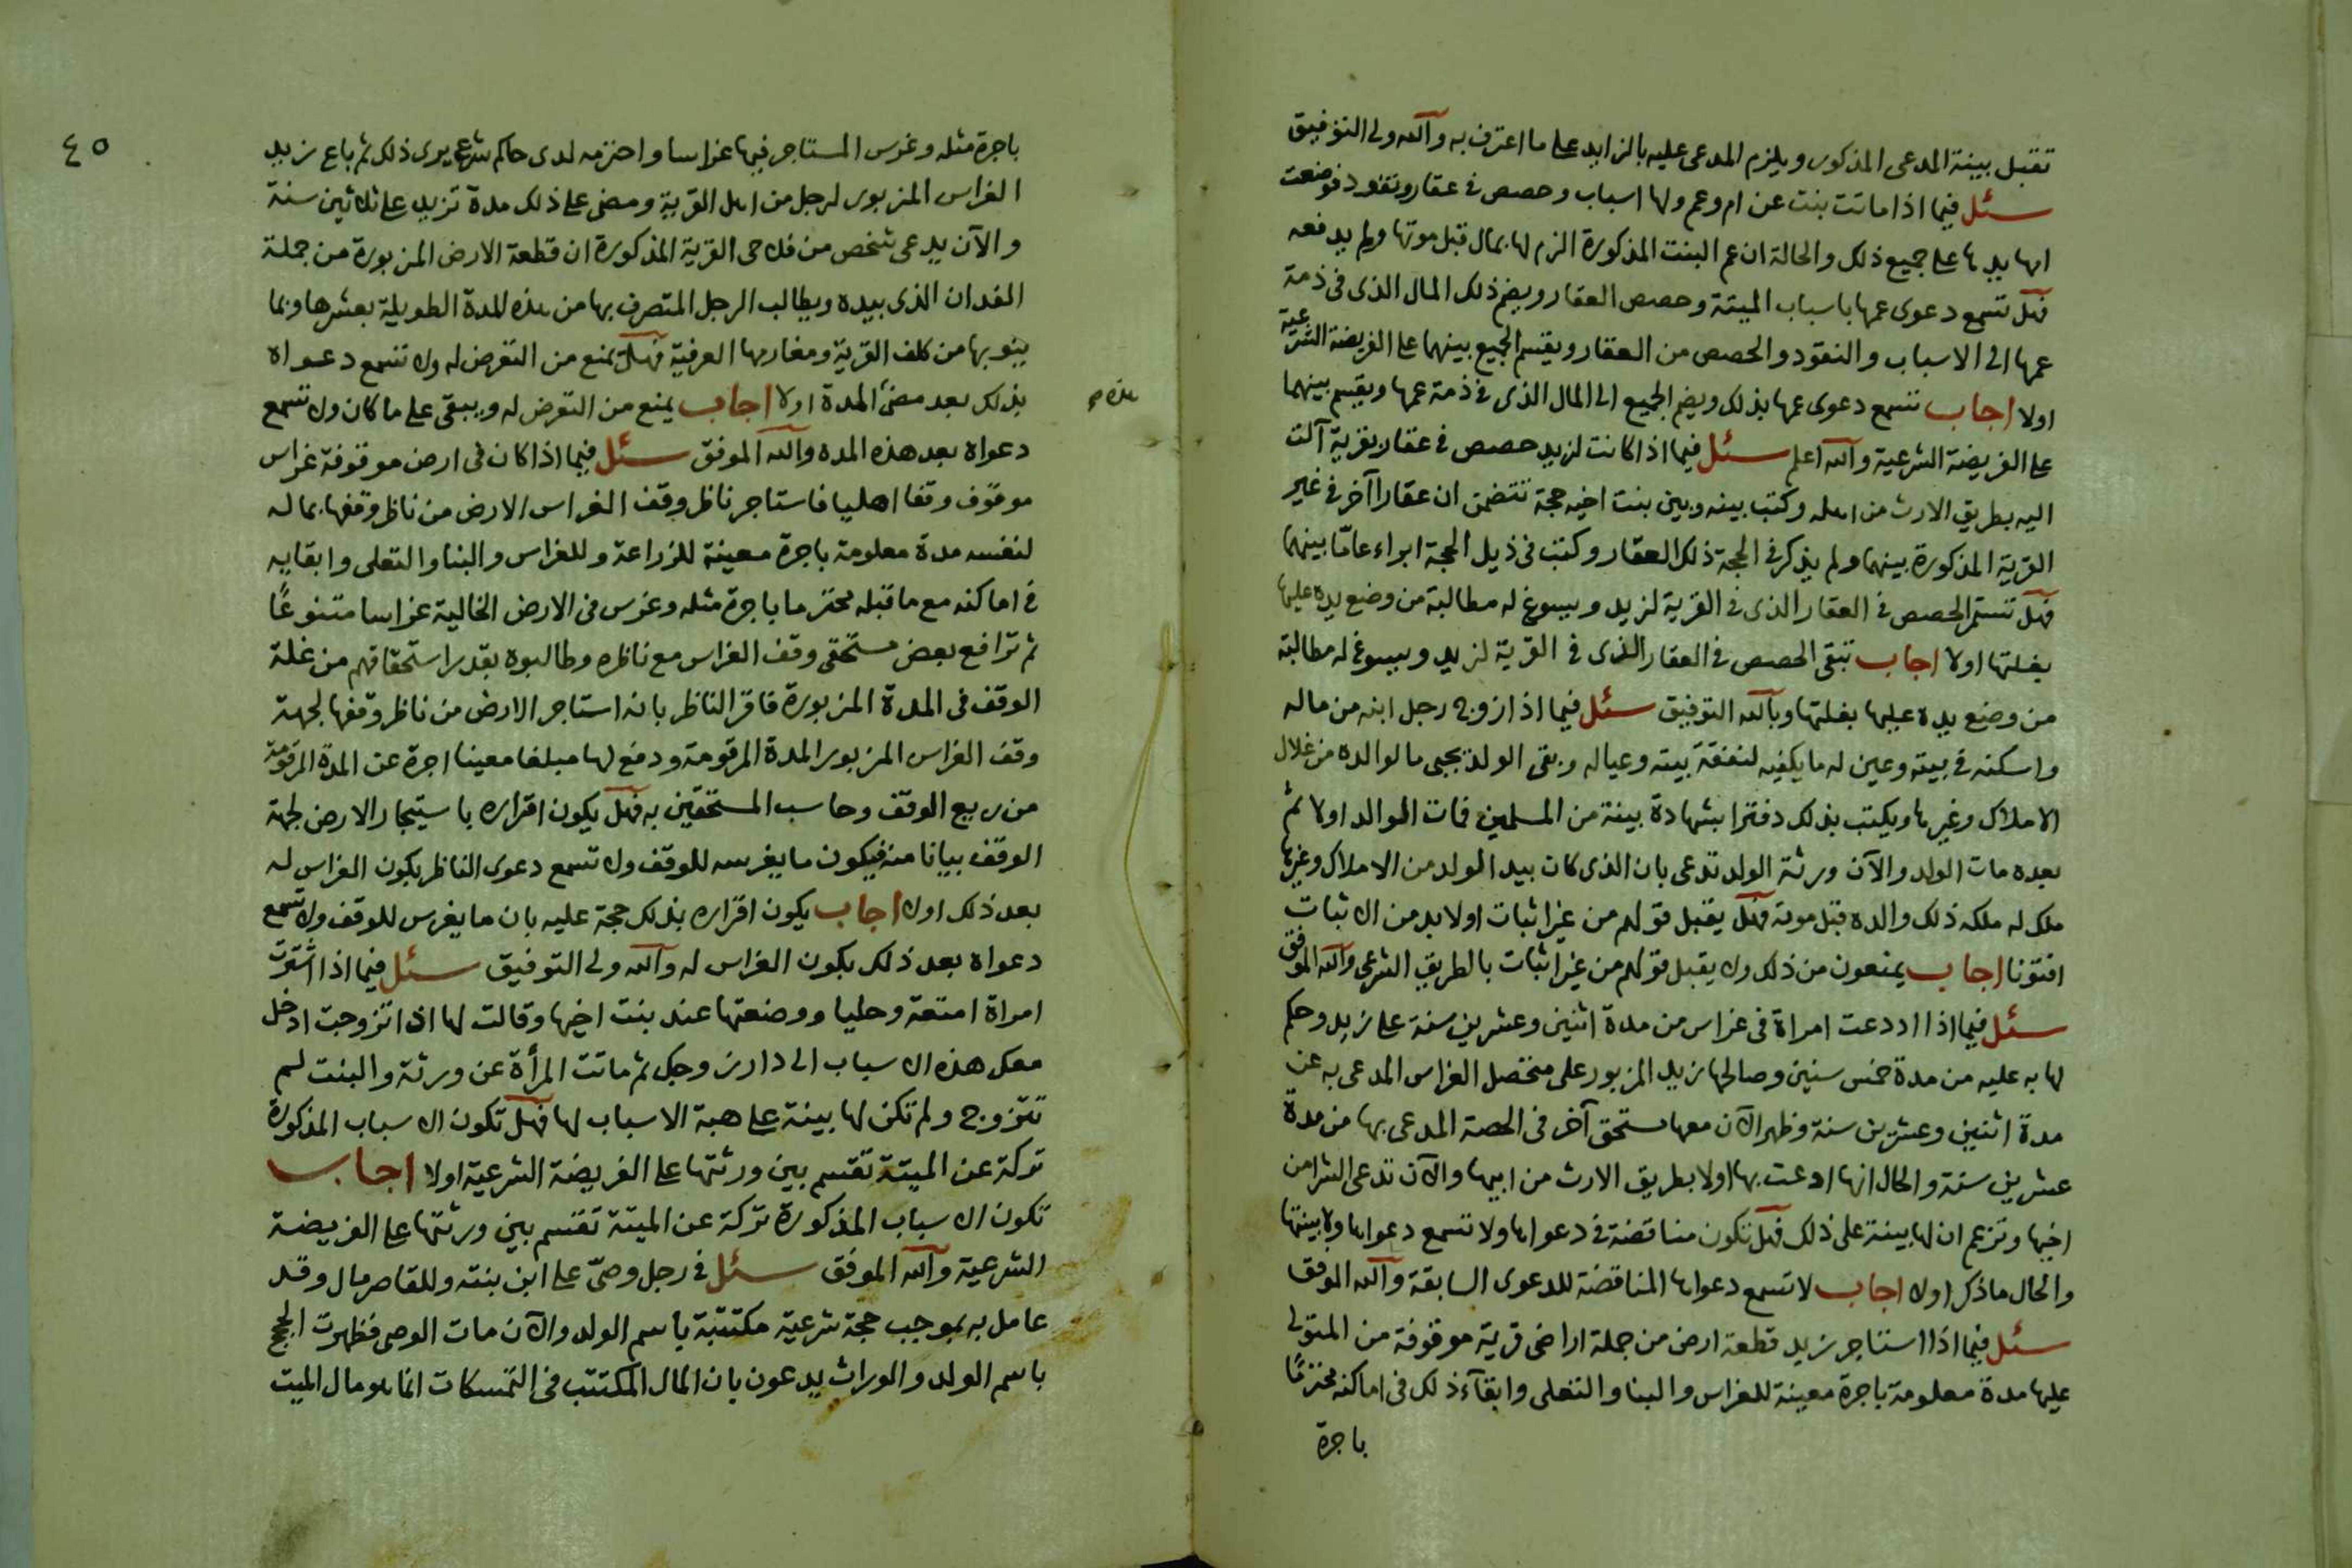 تقبل بينة المدعى المذكور ويلزم المدعى عليه بالزايد على ما اعترف به والله ولى التوفيق
سئل فيما اذا ماتت بنت عن ام وعم ولها اسباب وحصص فى عقار ونقود فوضعت
امها يدها على جميع ذلك والحالة ان عم البنت المذكورة الزم لها بمال قبل موتها ولم يدفعه
فهل تسمع دعوى عمها باسباب الميتة وحصص العقار ويضم ذلك المال الذى فى ذمة
عمها الى الاسباب والنقود والحصص من العقار ويقسم الجميع بينهما على الفريضة الشرعية
اولا اجاب تسمع دعوى عمها بذلك ويضم الجميع الى المال الذى فى ذمة عمها ويقسم بينهما
على الفريضة الشرعية والله اعلم سئل فيما اذا كانت لزيد حصص فى عقار بقرية آلت
اليه بطريق الارث من اهله وكتب بينه وبين بنت اخيه حجة تتضمن ان عقارا آخر فى غير
القرية المذكورة بينهما ولم يذكر فى الحجة ذلك العقار وكتب فى ذيل الحجة ابراء عامّا بينهما
فهل تستمر الحصص فى العقار الذى فى القرية لزيد ويسوغ له مطالبة من وضع يده عليها
بغلتها اولا اجاب تبقى الحصص فى العقار الذى فى القرية لزيد ويسوغ له مطالبة
من وضع يده عليها بغلتها وبالله التوفيق سئل فيما اذا زوج رجل ابنه من ماله
واسكنه فى بيته وعين له ما يكفيه لنفقة بيته وعياله وبقى الولد يجبى مال والده من غلال
الاملاك وغيرها ويكتب بذلك دفترا بشهادة بينة من المسلمين فمات الوالد اولا ثم
بعده مات الولد والآن ورثة الولد تدعى بان الذى كان بيد الولد من الاملاك وغيرها
ملك له ملكه ذلك والده قبل موته فهل يقبل قولهم من غير اثبات اولا بد من الاثبات
افتونا اجاب يمنعون من ذلك ولا يقبل قولهم من غير اثبات بالطريق الشرعى والله الموفق
سئل فيما اذا اددعت امراة فى غراس من مدة اثنين وعشرين سنة على زيد وحكم
لها به عليه من مدة خمس سنين وصالحها زيد المزبور على متحصل الغراس المدعى به عن
مدة اثنين وعشرين سنة وظهر الآن معها مستحق آخر فى الحصة المدعى بها من مدة
عشرين سنة والحال انها ادعت بها اولا بطريق الارث من ابيها والآن تدعى الشرا من
اخيها وتزعم ان لها بينة على ذلك فهل تكون مناقضة فى دعواها ولا تسمع دعواها ولا بينتها
والحال ما ذكر اولا اجاب لا تسمع دعواها المناقضة للدعوى السابقة والله الموفق
سئل فيما اذا استاجر زيد قطعة ارض من جملة اراضى قرية موقوفة من المتولى
عليها مدة معلومة باجرة معينة للغراس والبنا والتعلى وابقآء ذلك فى اماكنه محتزمًا
باجرة
٤٥
باجرة مثله وغرس المستاجر فيها غراسا واحتزمه لدى حاكم شرعى يرى ذلك ثم باع زيد
الغراس المزبور لرجل من اهل القرية ومضى على ذلك مدة تزيد على ثلاثين سنة
والآن يدعى شخص من فلاحى القرية المذكورة ان قطعة الارض المزبورة من جملة
الفدان الذى بيده ويطالب الرجل المتصرف بها من هذه المدة الطويلة بعشرها وبما
ينوبها من كلف القرية ومغارمها العرفية فهل يمنع من التعرض له ولا تسمع دعواه
بذلك بعد مضى المدة اولا اجاب يمنع من التعرض له ويبقى على ما كان ولا تسمع
هذه
دعواه بعد هذه المده والله الموفق سئل فيما اذا كان فى ارض موقوفة غراس
موقوف وقفا اهليا فاستاجر ناظر وقف الغراس الارض من ناظر وقفها بماله
لنفسه مدة معلومة باجرة معينة للزراعة وللغراس والبنا والتعلى وابقايه
فى اماكنه مع ما قبله محتزما باجرة مثله وغرس فى الارض الخالية غراسا متنوعًا
ثم ترافع بعض مستحقى وقف الغراس مع ناظره وطالبوه بقدر استحقاقهم من غلة
الوقف فى المدة المزبورة فاقر الناظر بانه استاجر الارض من ناظر وقفها لجهة
وقف الغراس المزبور المدة المرقومة ودفع لها مبلغا معينا اجرة عن المدة المرقومة
من ريع الوقف وحاسب المستحقين به فهل يكون اقراره باستيجار الارض لجهة
الوقف بيانا منه فيكون ما يغرسه للوقف ولا تسمع دعوى الناظر بكون الغراس له
بعد ذلك اولا اجاب يكون اقراره بذلك حجة عليه بان ما يغرس للوقف ولا تسمع
دعواه بعد ذلك بكون الغراس له والله ولى التوفيق سئل فيما اذا اشترت
امراة امتعة وحليا ووضعتها عند بنت اخيها وقالت لها اذا تزوجت ادخل
معك هذه الاسباب الى دار زوجك ثم ماتت المرأة عن ورثة والبنت لم
تتزوج ولم تكن لها بينة على هبة الاسباب لها فهل تكون الاسباب المذكورة
تركة عن الميتة تقسم بين ورثتها على الفريضة الشرعية اولا اجاب
تكون الاسباب المذكورة تركة عن الميتة تقسم بين ورثتها على الفريضة
الشرعية والله الموفق سئل فى رجل وصىّ على ابن بنته وللقاصر مال وقد
عامل به بموجب حجة شرعية مكتتبة باسم الولد والآن مات الوصى فظهرت الحجج
باسم الولد والوراث يدعون بان المال المكتتب فى التمسكات انما هو مال الميت